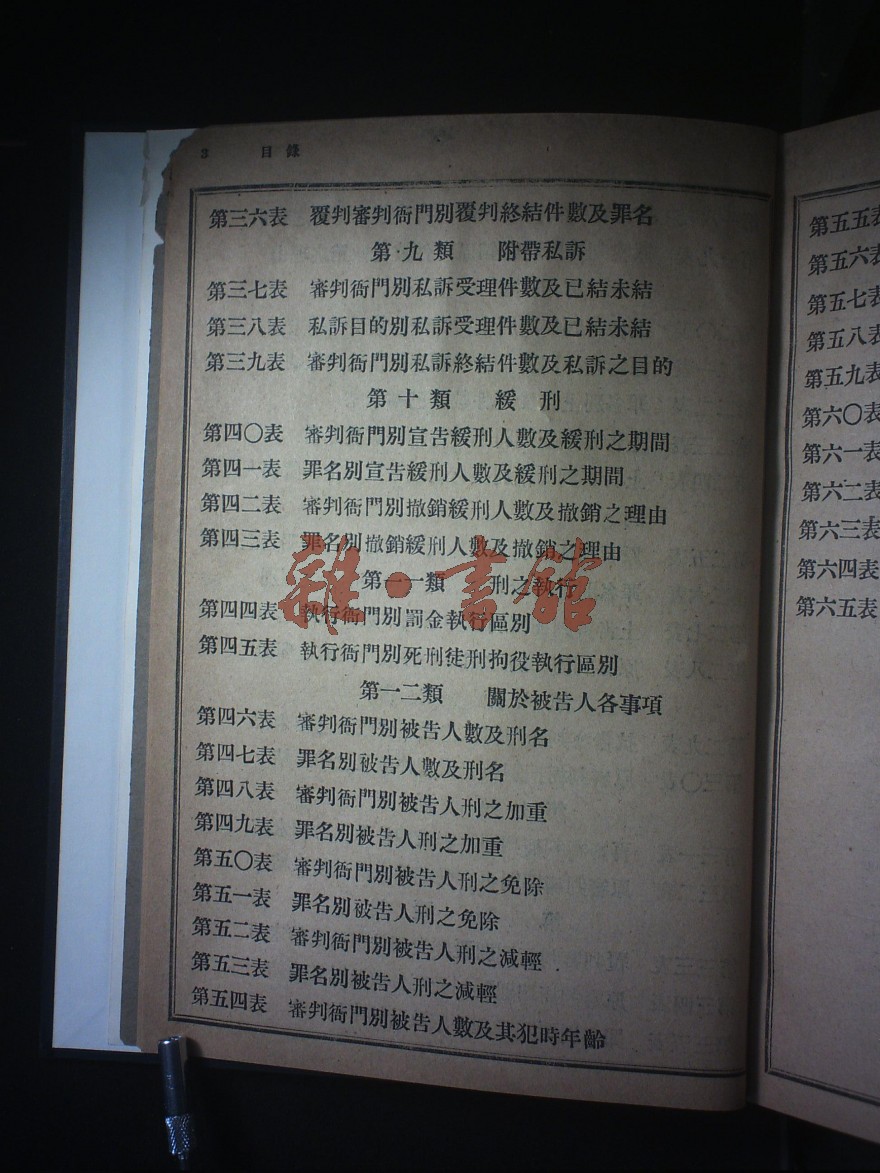 3 目錄
第三六表 覆判審判衙門別覆判終結件數及罪名
第九類 附帶私訴
第三七表 審判衙門別私訴受理件數及已結未結
第三八表 私訴目的別私訴受理件數及已結未結
第三九表 審判衙門別私訴終結件數及私訴之目的
第十類 緩刑
第四〇表 審判衙門別宣告緩刑人數及緩刑之期間
第四一表 罪名別宣告緩刑人數及緩刑之期間
第四二表 審判衙門別撤銷緩刑人數及撤銷之理由
第四三表 罪名別撤銷緩刑人數及撤銷之理由
第一一類 刑之執行
雜·書館
第四四表 執行衙門別罰金執行區別
第四五表 執行衙門別死刑徒刑拘役執行區別
第一二類 關於被告人各事項
第四六表 審判衙門別被告人數及刑名
第四七表 罪名別被告人數及刑名
第四八表 審判衙門別被告人刑之加重
第四九表 罪名別被告人刑之加重
第五〇表 審判衙門別被告人刑之免除
第五一表 罪名別被告人刑之免除
第五二表 審判衙門別被告人刑之減輕
第五三表 罪名別被告人刑之減輕
第五四表 審判衙門別被告人數及其犯時年齡
第五五表
第五六表
第五七表
第五八表
第五九表
第六〇表
第六一表
第六二表
第六三表
第六四表
第六五表